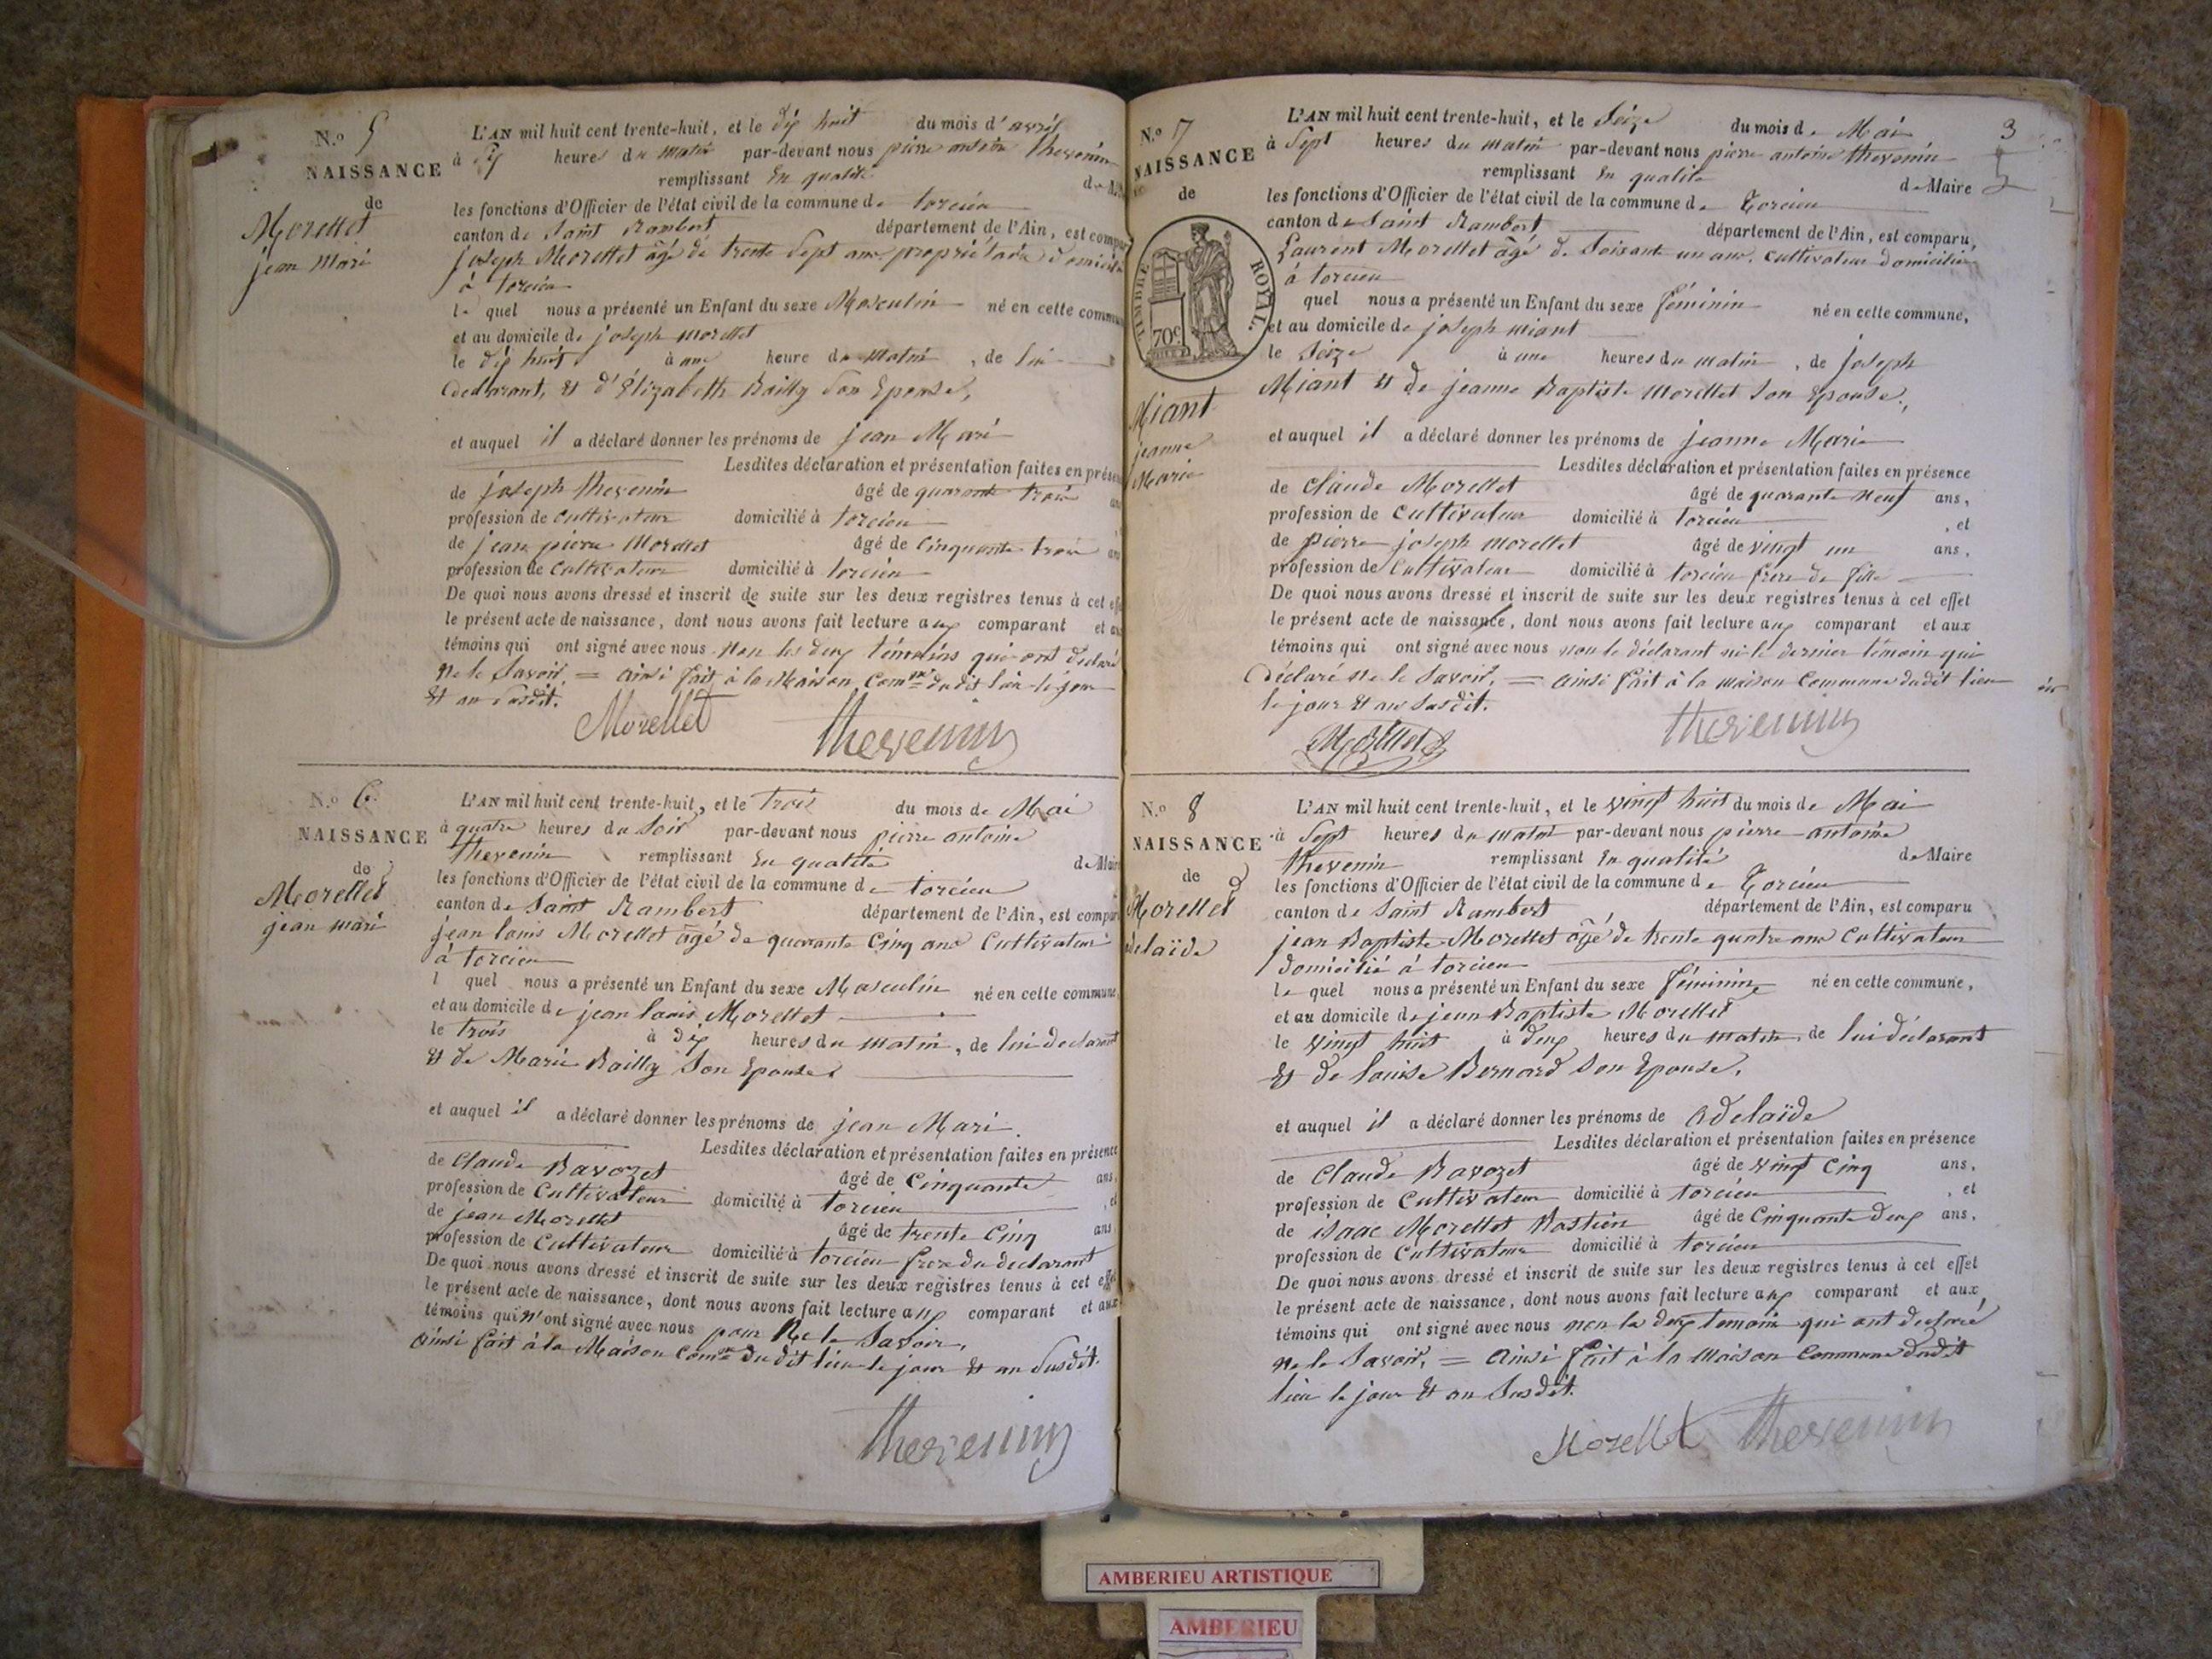 N.o 5
NAISSANCE
de
Morellet
jean Mari
L'AN mil huit cent trente-huit, et le dix huit du mois d'avril
à heures du matin par-devant nous pierre antoine thevenin
remplissant En qualité de
les fonctions d'Officier de l'état civil de la commune de torcieu
canton de Saint Rambert département de l'Ain, est compar
joseph Morellet âgé de trente Sept ans propriétaire domicilié
à torcieu
le quel nous a présenté un Enfant du sexe Masculin né en cette commune
et au domicile de joseph morellet
le dix huit à une heure du matin, de lui
declarant, et d'Elizabeth Bailly Son Epouse,
et auquel il a déclaré donner les prénoms de jean Mari
Lesdites déclaration et présentation faites en présen
de joseph thevenin âgé de quarante trois ans
profession de Cultivateur domicilié à torcieu
de jean pierre Morellet âgé de Cinquante trois ans
profession de Cultivateur domicilié à torcieu
De quoi nous avons dressé et inscrit de suite sur les deux registres tenus à cet eff
le présent acte de naissance, dont nous avons fait lecture aux comparant et aux
témoins qui ont signé avec nous Non les deux témoins qui ont declaré
Ne le Savoir, = ainsi fait à la Maison Comne dudit lieu le jour
Et an Susdit.
Morellet thevenin
N.o 6
NAISSANCE
de
Morellet
jean mari
L'AN mil huit cent trente-huit, et le trois du mois de Mai
à quatre heures du Soir par-devant nous pierre antoine
thevenin remplissant En qualité de Maire
les fonctions d'Officier de l'état civil de la commune de torcieu
canton de Saint Rambert département de l'Ain, est compar
jean louis Morellet âgé de quarante Cinq ans Cultivateur
à torcieu
l quel nous a présenté un Enfant du sexe Masculin né en cette commune,
et au domicile de jean louis Morellet
le trois à dix heures du matin, de lui declarant
et de Marie Bailly Son Epouse
et auquel il a déclaré donner les prénoms de jean Mari
Lesdites déclaration et présentation faites en présence
de Claude Ravozet âgé de Cinquante ans,
profession de Cultivateur domicilié à torcieu, et
de jean Morellet âgé de trente Cinq ans
profession de Cultivateur domicilié à torcieu frere du declarant
De quoi nous avons dressé et inscrit de suite sur les deux registres tenus à cet effet
le présent acte de naissance, dont nous avons fait lecture aux comparant et aux
témoins qui n'ont signé avec nous pour Ne le Savoir,
ainsi fait à la Maison Comne dudit lieu le jour et an Susdit.
thevenin
N.o 7
NAISSANCE
de
TIMBRE ROYAL.
70c
Miant
jeanne
Marie
3
5
L'AN mil huit cent trente-huit, et le Seize du mois de Mai
à Sept heures du matin par-devant nous pierre antoine thevenin
remplissant En qualité de Maire
les fonctions d'Officier de l'état civil de la commune de Torcieu
canton de Saint Rambert département de l'Ain, est comparu,
Laurent Morellet âgé de Soixante un ans, Cultivateur domicilié
à torcieu
quel nous a présenté un Enfant du sexe féminin né en cette commune,
et au domicile de joseph miant
le Seize à une heures du matin, de joseph
Miant et de jeanne Baptiste Morellet Son Epouse,
et auquel il a déclaré donner les prénoms de jeanne Marie
Lesdites déclaration et présentation faites en présence
de Claude Morellet âgé de quarante Neuf ans,
profession de Cultivateur domicilié à torcieu, et
de pierre joseph Morellet âgé de vingt un ans,
profession de Cultivateur domicilié à torcieu frere de fille
De quoi nous avons dressé et inscrit de suite sur les deux registres tenus à cet effet
le présent acte de naissance, dont nous avons fait lecture aux comparant et aux
témoins qui ont signé avec nous non le déclarant ni le dernier témoin qui
Déclaré Ne le Savoir, = ainsi fait à la maison Commune dudit lieu
le jour et an Susdit.
Morellet thevenin
N.o 8
NAISSANCE
de
Morellet
adelaïde
L'AN mil huit cent trente-huit, et le vingt huit du mois de Mai
à Sept heures du matin par-devant nous pierre antoine
thevenin remplissant En qualité de Maire
les fonctions d'Officier de l'état civil de la commune de Torcieu
canton de Saint Rambert département de l'Ain, est comparu
jean Baptiste Morellet âgé de trente quatre ans Cultivateur
domicilié à torcieu
le quel nous a présenté un Enfant du sexe féminin né en cette commune,
et au domicile de jean Baptiste Morellet
le vingt huit à deux heures du matin, de lui déclarant
Et de louise Bernard Son Epouse,
et auquel il a déclaré donner les prénoms de adelaïde
Lesdites déclaration et présentation faites en présence
de Claude Ravozet âgé de vingt Cinq ans,
profession de Cultivateur domicilié à torcieu, et
de isaac Morellet Bastien âgé de Cinquante deux ans,
profession de Cultivateur domicilié à torcieu
De quoi nous avons dressé et inscrit de suite sur les deux registres tenus à cet effet
le présent acte de naissance, dont nous avons fait lecture aux comparant et aux
témoins qui ont signé avec nous non les deux temoins qui ont declaré
Ne le Savoir, = Ainsi fait à la Maison Commune dudit
lieu le jour et an Susdit.
Morellet thevenin
AMBERIEU ARTISTIQUE
AMBERIEU